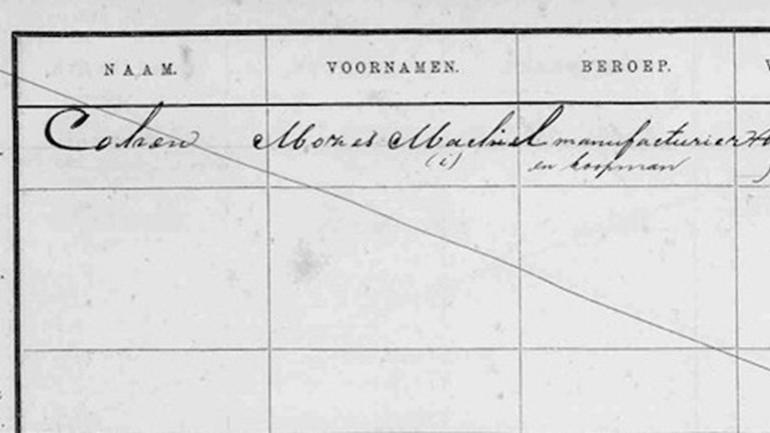 NAAM. VOORNAMEN. BEROEP.
Cohen Mozes Machiel manufacturier
(i) en koopman